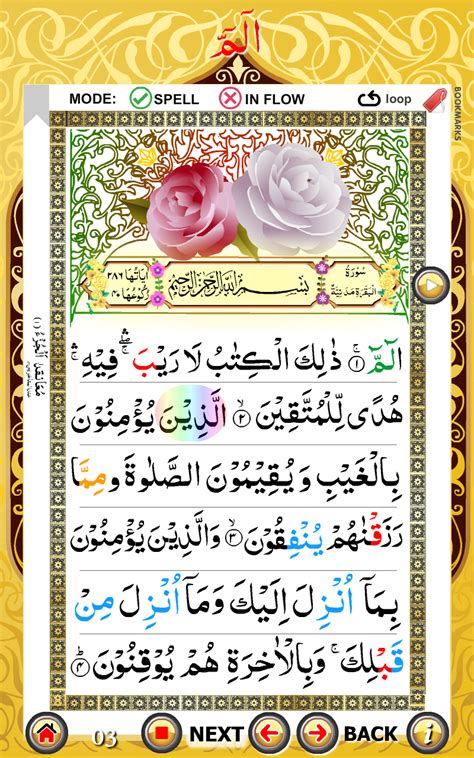 الٓمّٓ
MODE: SPELL IN FLOW loop
BOOKMARKS
سُوْرَةُ الْبَقَرَةِ مَدَنِيَّةٌ
بِسْمِ اللّٰهِ الرَّحْمٰنِ الرَّحِيْمِ
اٰيَاتُهَا ٢٨٦
رُكُوْعُهَا ٤٠
الٓمّٓ ۚ﴿١﴾ ذٰلِكَ الْكِتٰبُ لَا رَيْبَ ۛۖ فِيْهِ ۛۚ
هُدًى لِّلْمُتَّقِيْنَ ﴿٢﴾ الَّذِيْنَ يُؤْمِنُوْنَ
بِالْغَيْبِ وَيُقِيْمُوْنَ الصَّلٰوةَ وَمِمَّا
رَزَقْنٰهُمْ يُنْفِقُوْنَ ﴿٣﴾ وَالَّذِيْنَ يُؤْمِنُوْنَ
بِمَآ اُنْزِلَ اِلَيْكَ وَمَآ اُنْزِلَ مِنْ
قَبْلِكَ ۚ وَبِالْاٰخِرَةِ هُمْ يُوْقِنُوْنَ ﴿٤﴾
03 NEXT BACK i